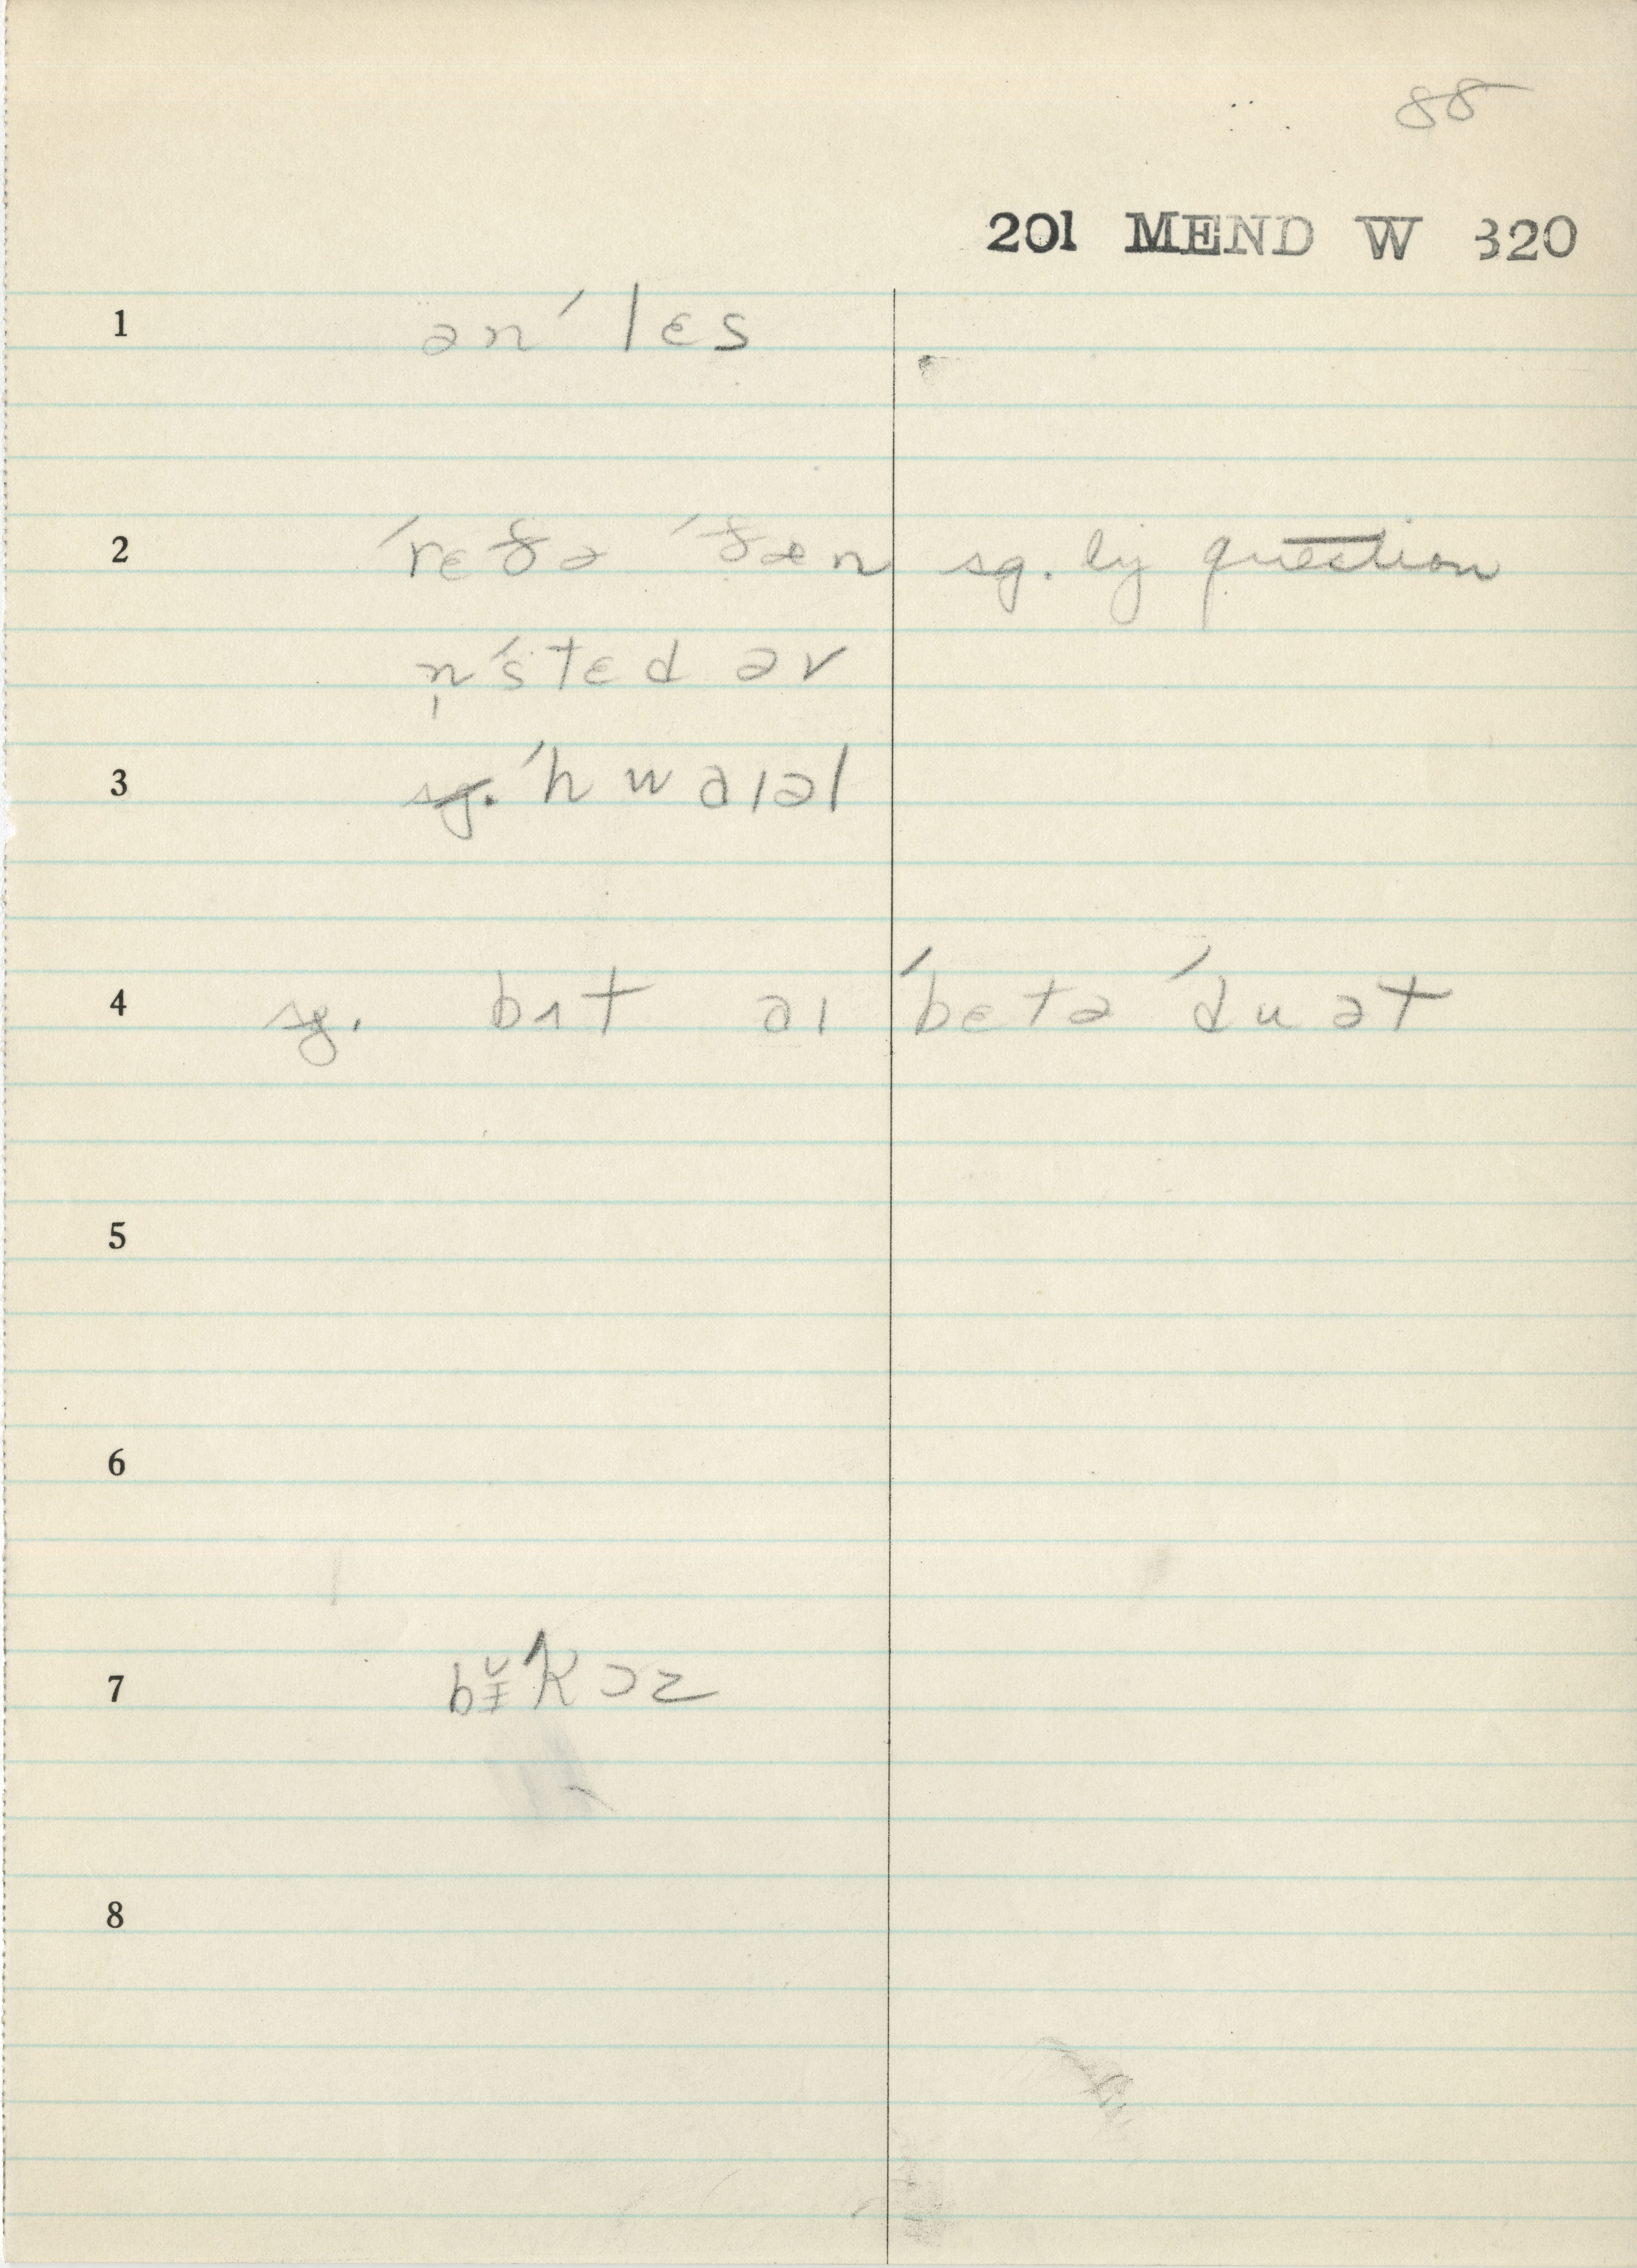 88
201 MEND W 320
1 ən ˊlɛs
2 ˊrɛðə ˊðæn sg. by question
n̩ ˊstɛd əv
3 sg. ˊhwaɪəl
4 sg. bʌt aɪ ˊbɛtə ˊdu ət
5
6
7 ˊkɔz
8